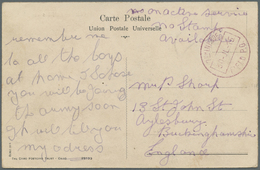 on active service
no Stamps
available
Carte Postale
Union Postale Universelle
remember me
to all the boys
at home I hope
you will be joing
the army soon
I will tell you
my adress
Mr P Sharp
18 St John St
Aylesbury
Buckinghamshire
England